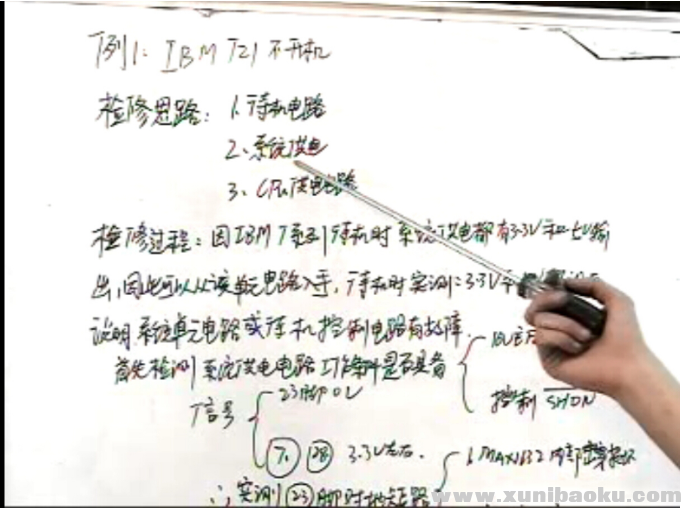 例1: IBM T21 不开机
检修思路: 1. 待机电路
2、系统供电
3、CPU供电电路
检修过程: 因IBM T系列待机时系统供电都有3.3V和5V输
出,因此可以从该单元电路入手,待机时实测: 3.3V
说明系统单元电路或待机控制电路有故障.
首先检测系统供电电路工作条件是否具备
控制 SHDN
信号
23脚 0V
7. 28 3.3V左右.
1. MAX1632内部
∴ 实测 23 脚对地短路
www.xunibaoku.com